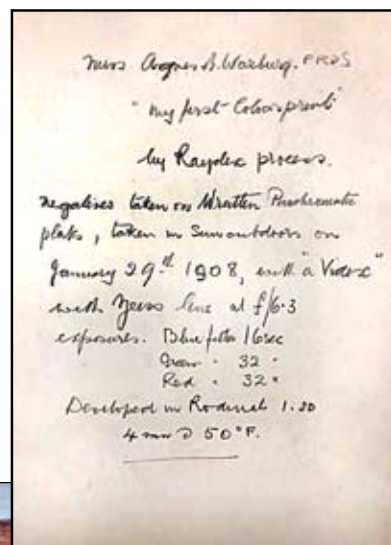 Miss Agnes B. Warburg. FRPS
"my first Colourprint"
by Raydex process.
negatives taken on Wratten Panchromatic
plates, taken in Sun outdoors on
January 29th 1908, with "a Videx"
with Zeiss lens at f/6.3
exposures. Blue filter 16 sec
Green " 32 "
Red " 32 "
Developed in Rodinal 1.20
4 min @ 50°F.